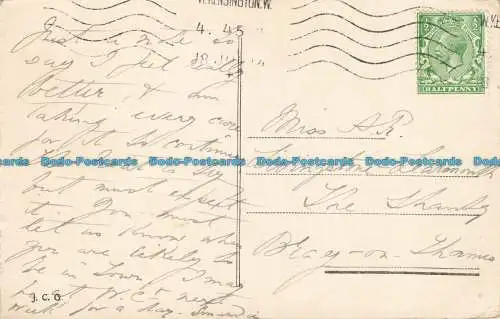 W.KENSINGTON.W.
4. 45
HALFPENNY
Just a note to
say I feel
better, & am
taking every care
for it to continue
but must expect
it. You must
let us know when
you are likely to
be in Town, I may
next
week for a day.
J.C.O.
Miss A.R.
Livingstone
The Shanty
Bray-on-Thames
Dodo-Postcards Dodo-Postcards Dodo-Postcards Dodo-Postcards Dodo-Postcards